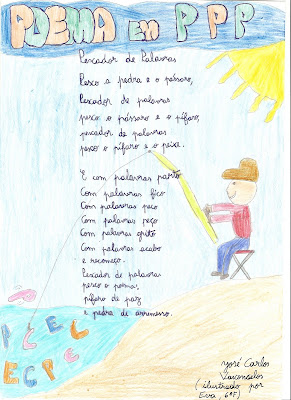 POEMA EM PPP
Pescador de Palavras
Pesco a pedra e o pássaro,
Pescador de palavras
pesco o pássaro e o pífaro,
pescador de palavras
pesco o pífaro e o peixe.
E com palavras parto
Com palavras fico
Com palavras peco
Com palavras peço
Com palavras grito
Com palavras acabo
e recomeço.
Pescador de palavras
pesco o poema,
pífaro de paz
e pedra de arremesso.
José Carlos
Vasconcelos
(ilustrado por
Eva, 6ºF)